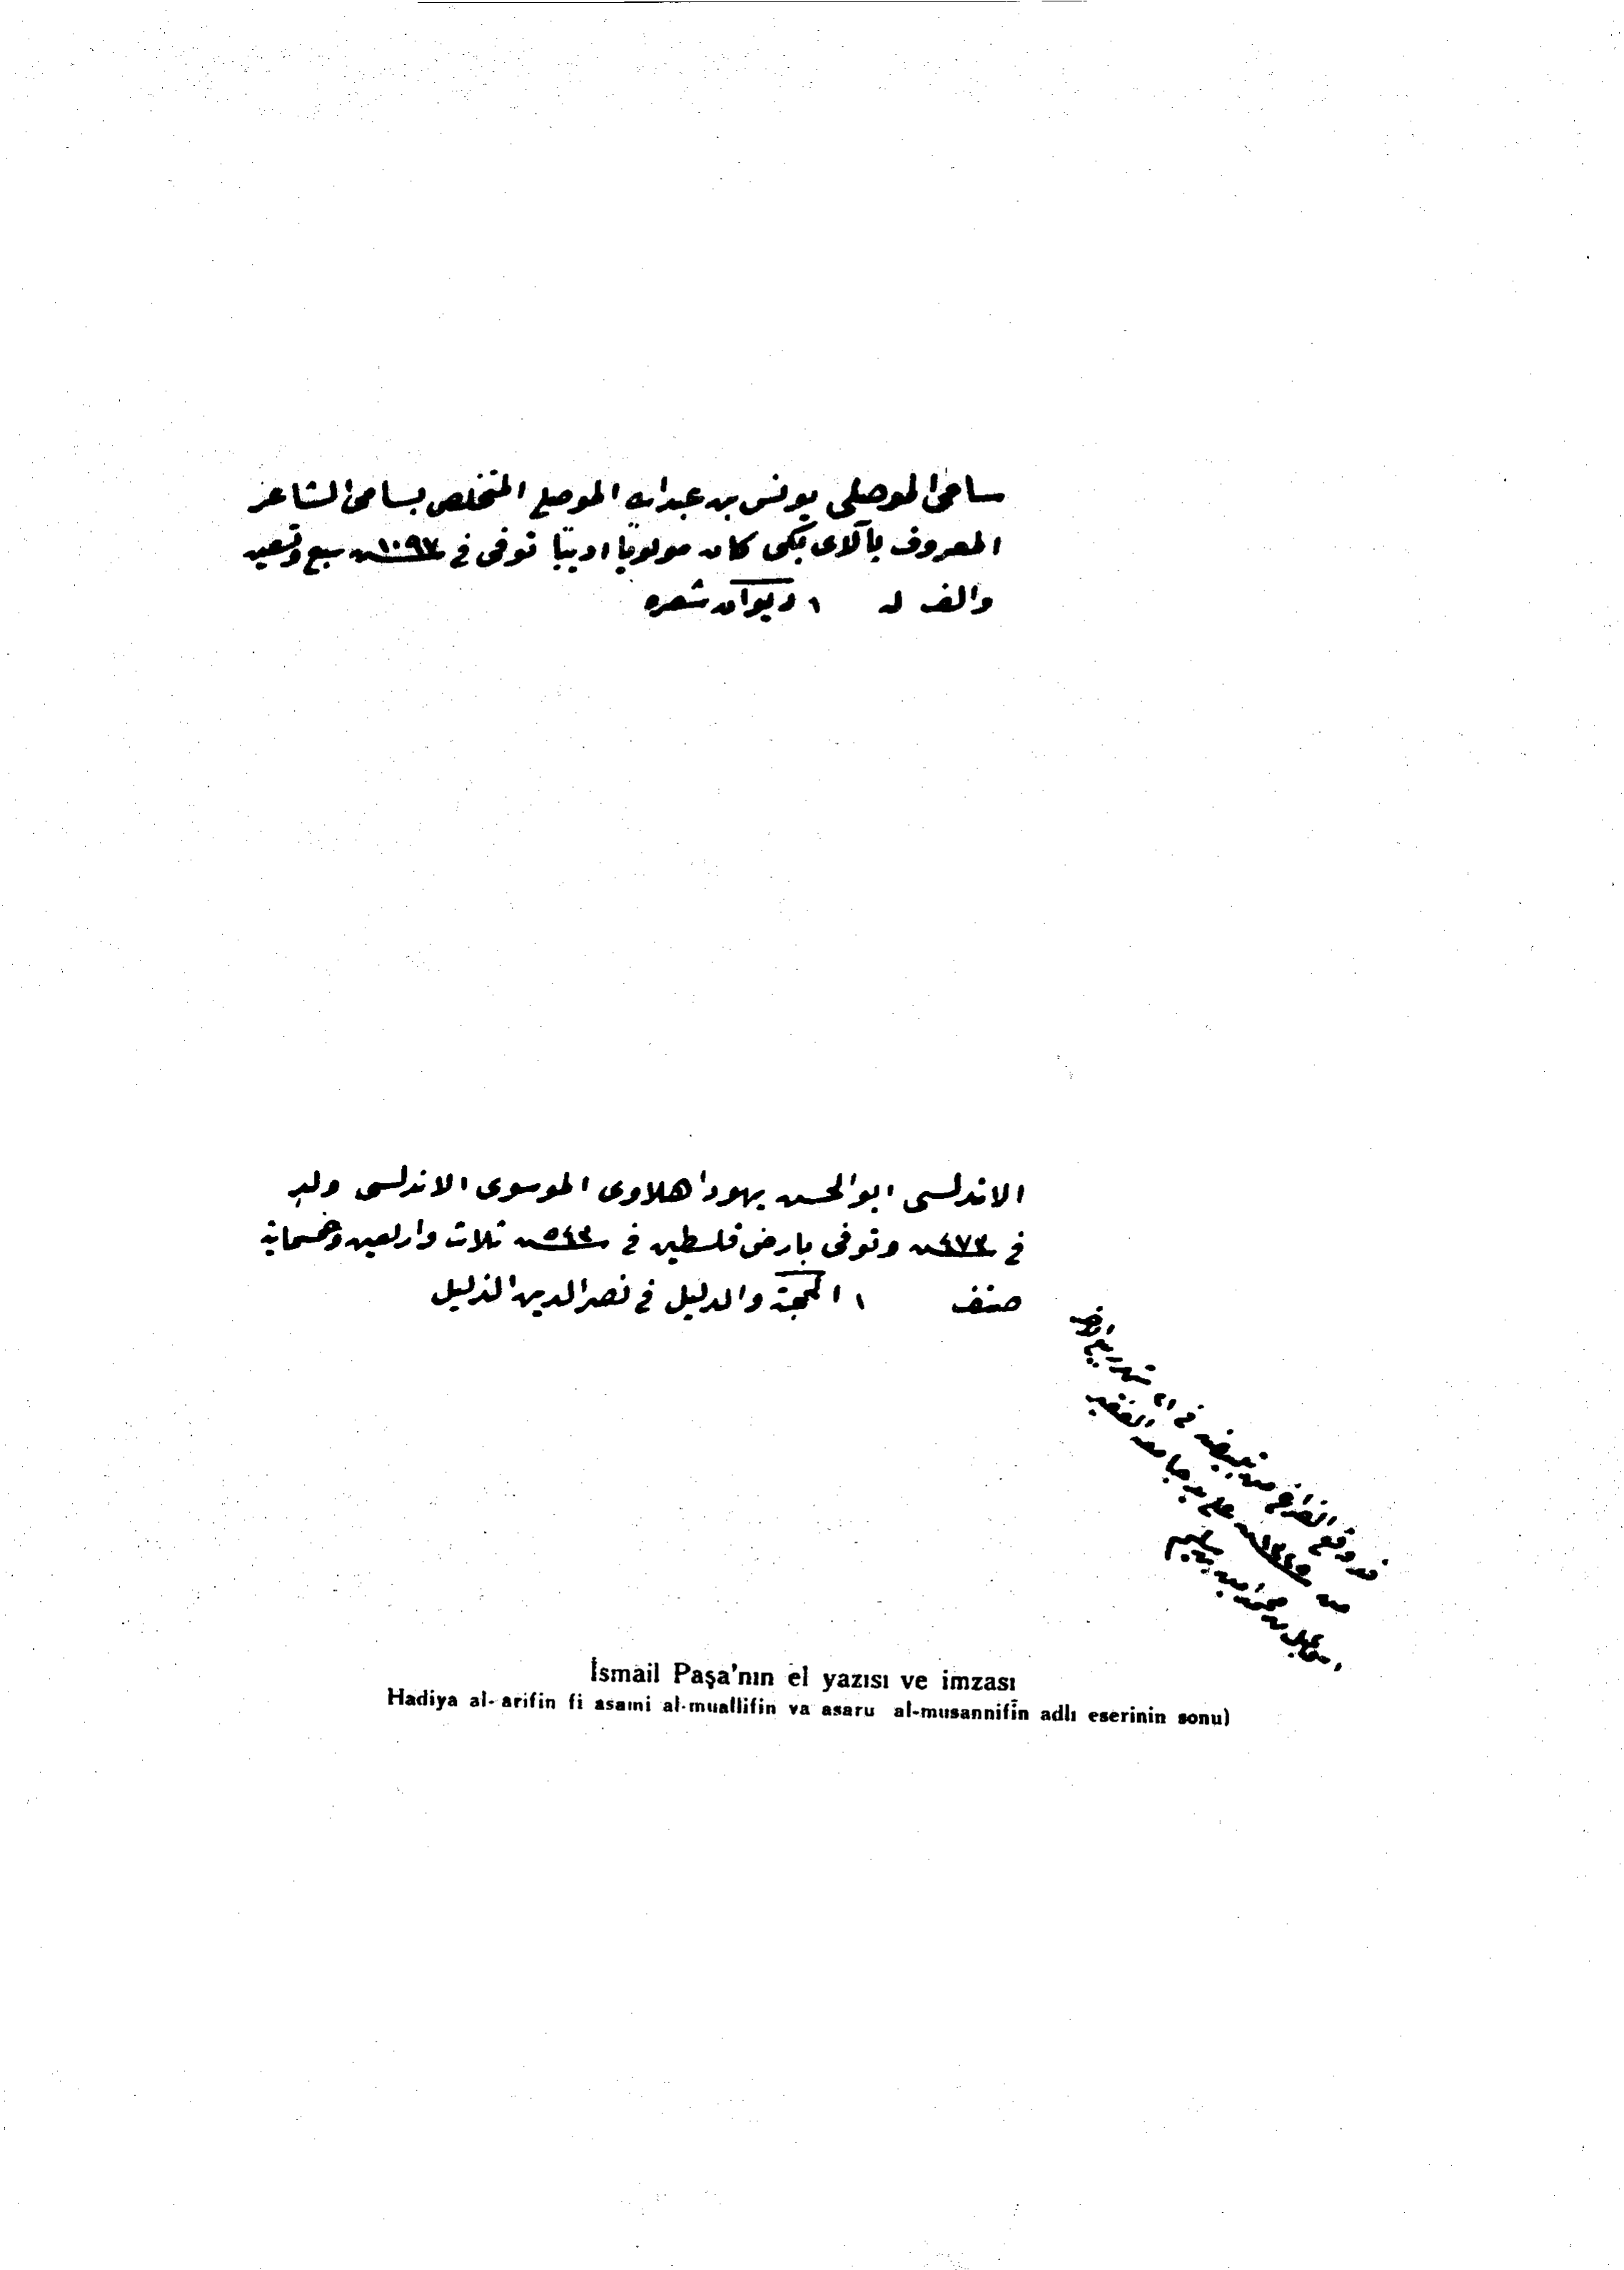 سامى الموصلى يونس بن عبدالله الموصلى المتخلص بسامى الشاعر
المعروف بآلاى بكى كان مولويا اديبًا توفى فى سنة ١٠٩٧ سبع وتسعين
والف له ١ ديوان شعره
الاندلسى ابو الحسن يهودا هلاوى الموسوى الاندلسى ولد
فى سنة ٤٧٣ وتوفى بارض فلسطين فى سنة ٥٤٣ ثلاث واربعين وخمسماية
صنف ١ الحجة والدليل فى نصر الدين الذليل
قد وقع الفراغ من تبييضه فى ٢١ شهر
من سنة على يد جامعه الفقير
اسماعيل بن محمد امين بن سليم
İsmail Paşa'nın el yazısı ve imzası
Hadiya al-arifin fi asami al-muallifin va asaru al-musannifin adlı eserinin sonu)